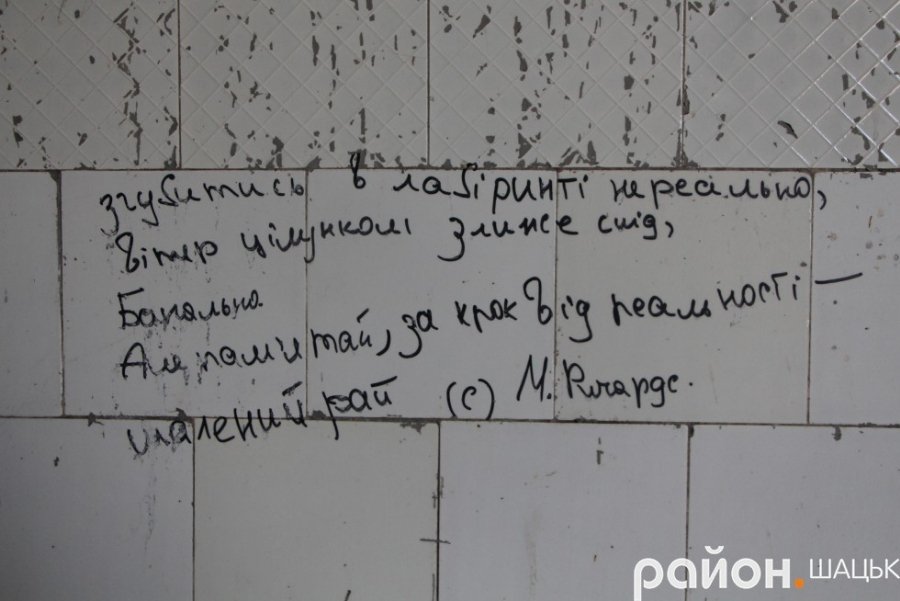 згубитись в лабіринті нереально,
вітер цілунком злиже слід,
Банально
Але пам'ятай, за крок від реальності —
шалений рай (с) М. Річардс.
район.ШАЦЬК